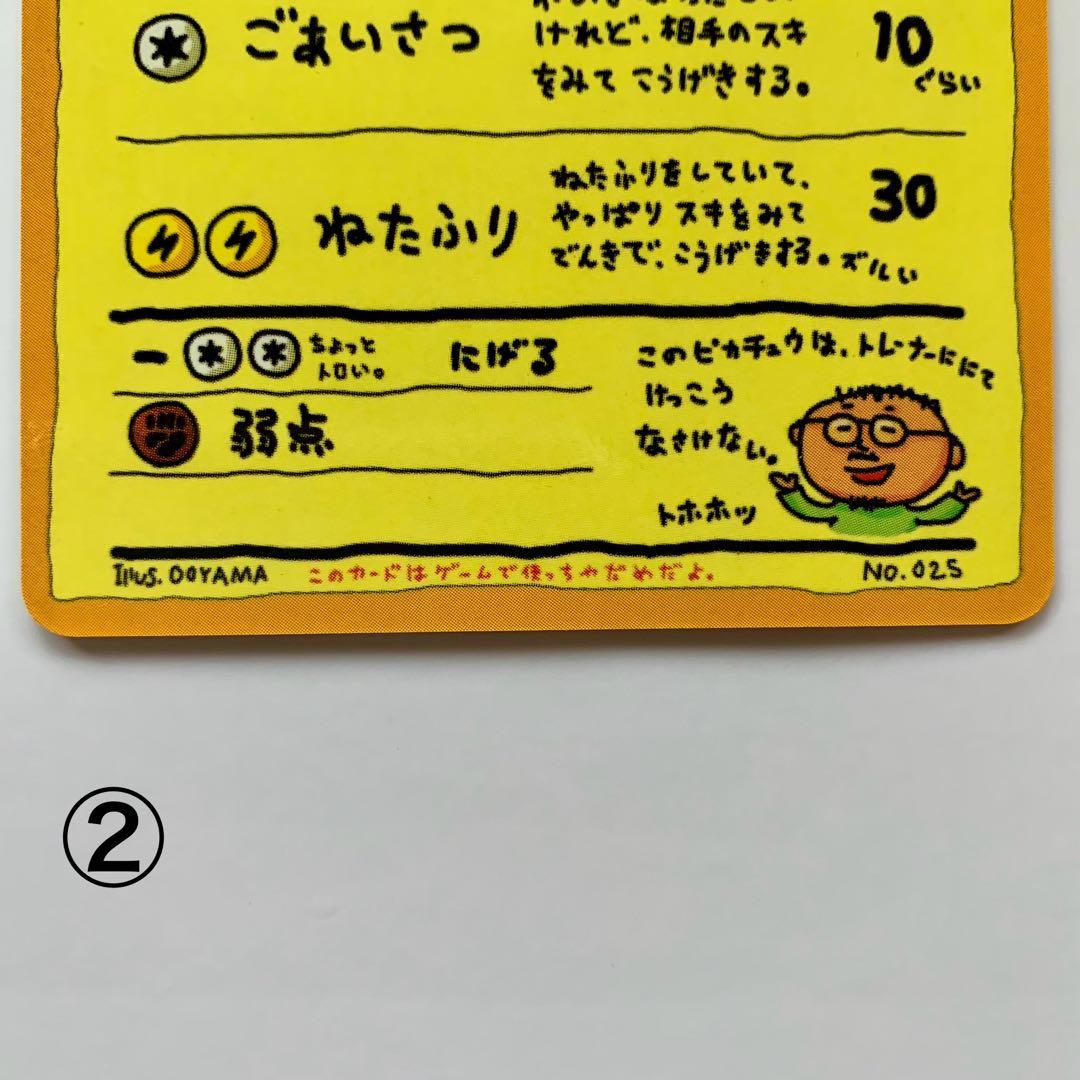 ごあいさつ
けれど、相手のスキ
をみて こうげきする。
10
ぐらい
ねたふり
ねたふりをしていて、
やっぱり スキをみて
でんきで、こうげきする。ズルい
30
ー
ちょっと
トロい。
にげる
弱点
このピカチュウは、トレーナーににて
けっこう
なさけない。
トホホッ
Illus. OOYAMA
このカードはゲームで使っちゃだめだよ。
NO.025
②